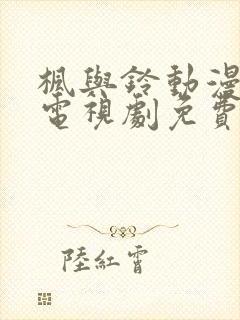 楓與鈴動漫
電視劇免費
陸紅霄